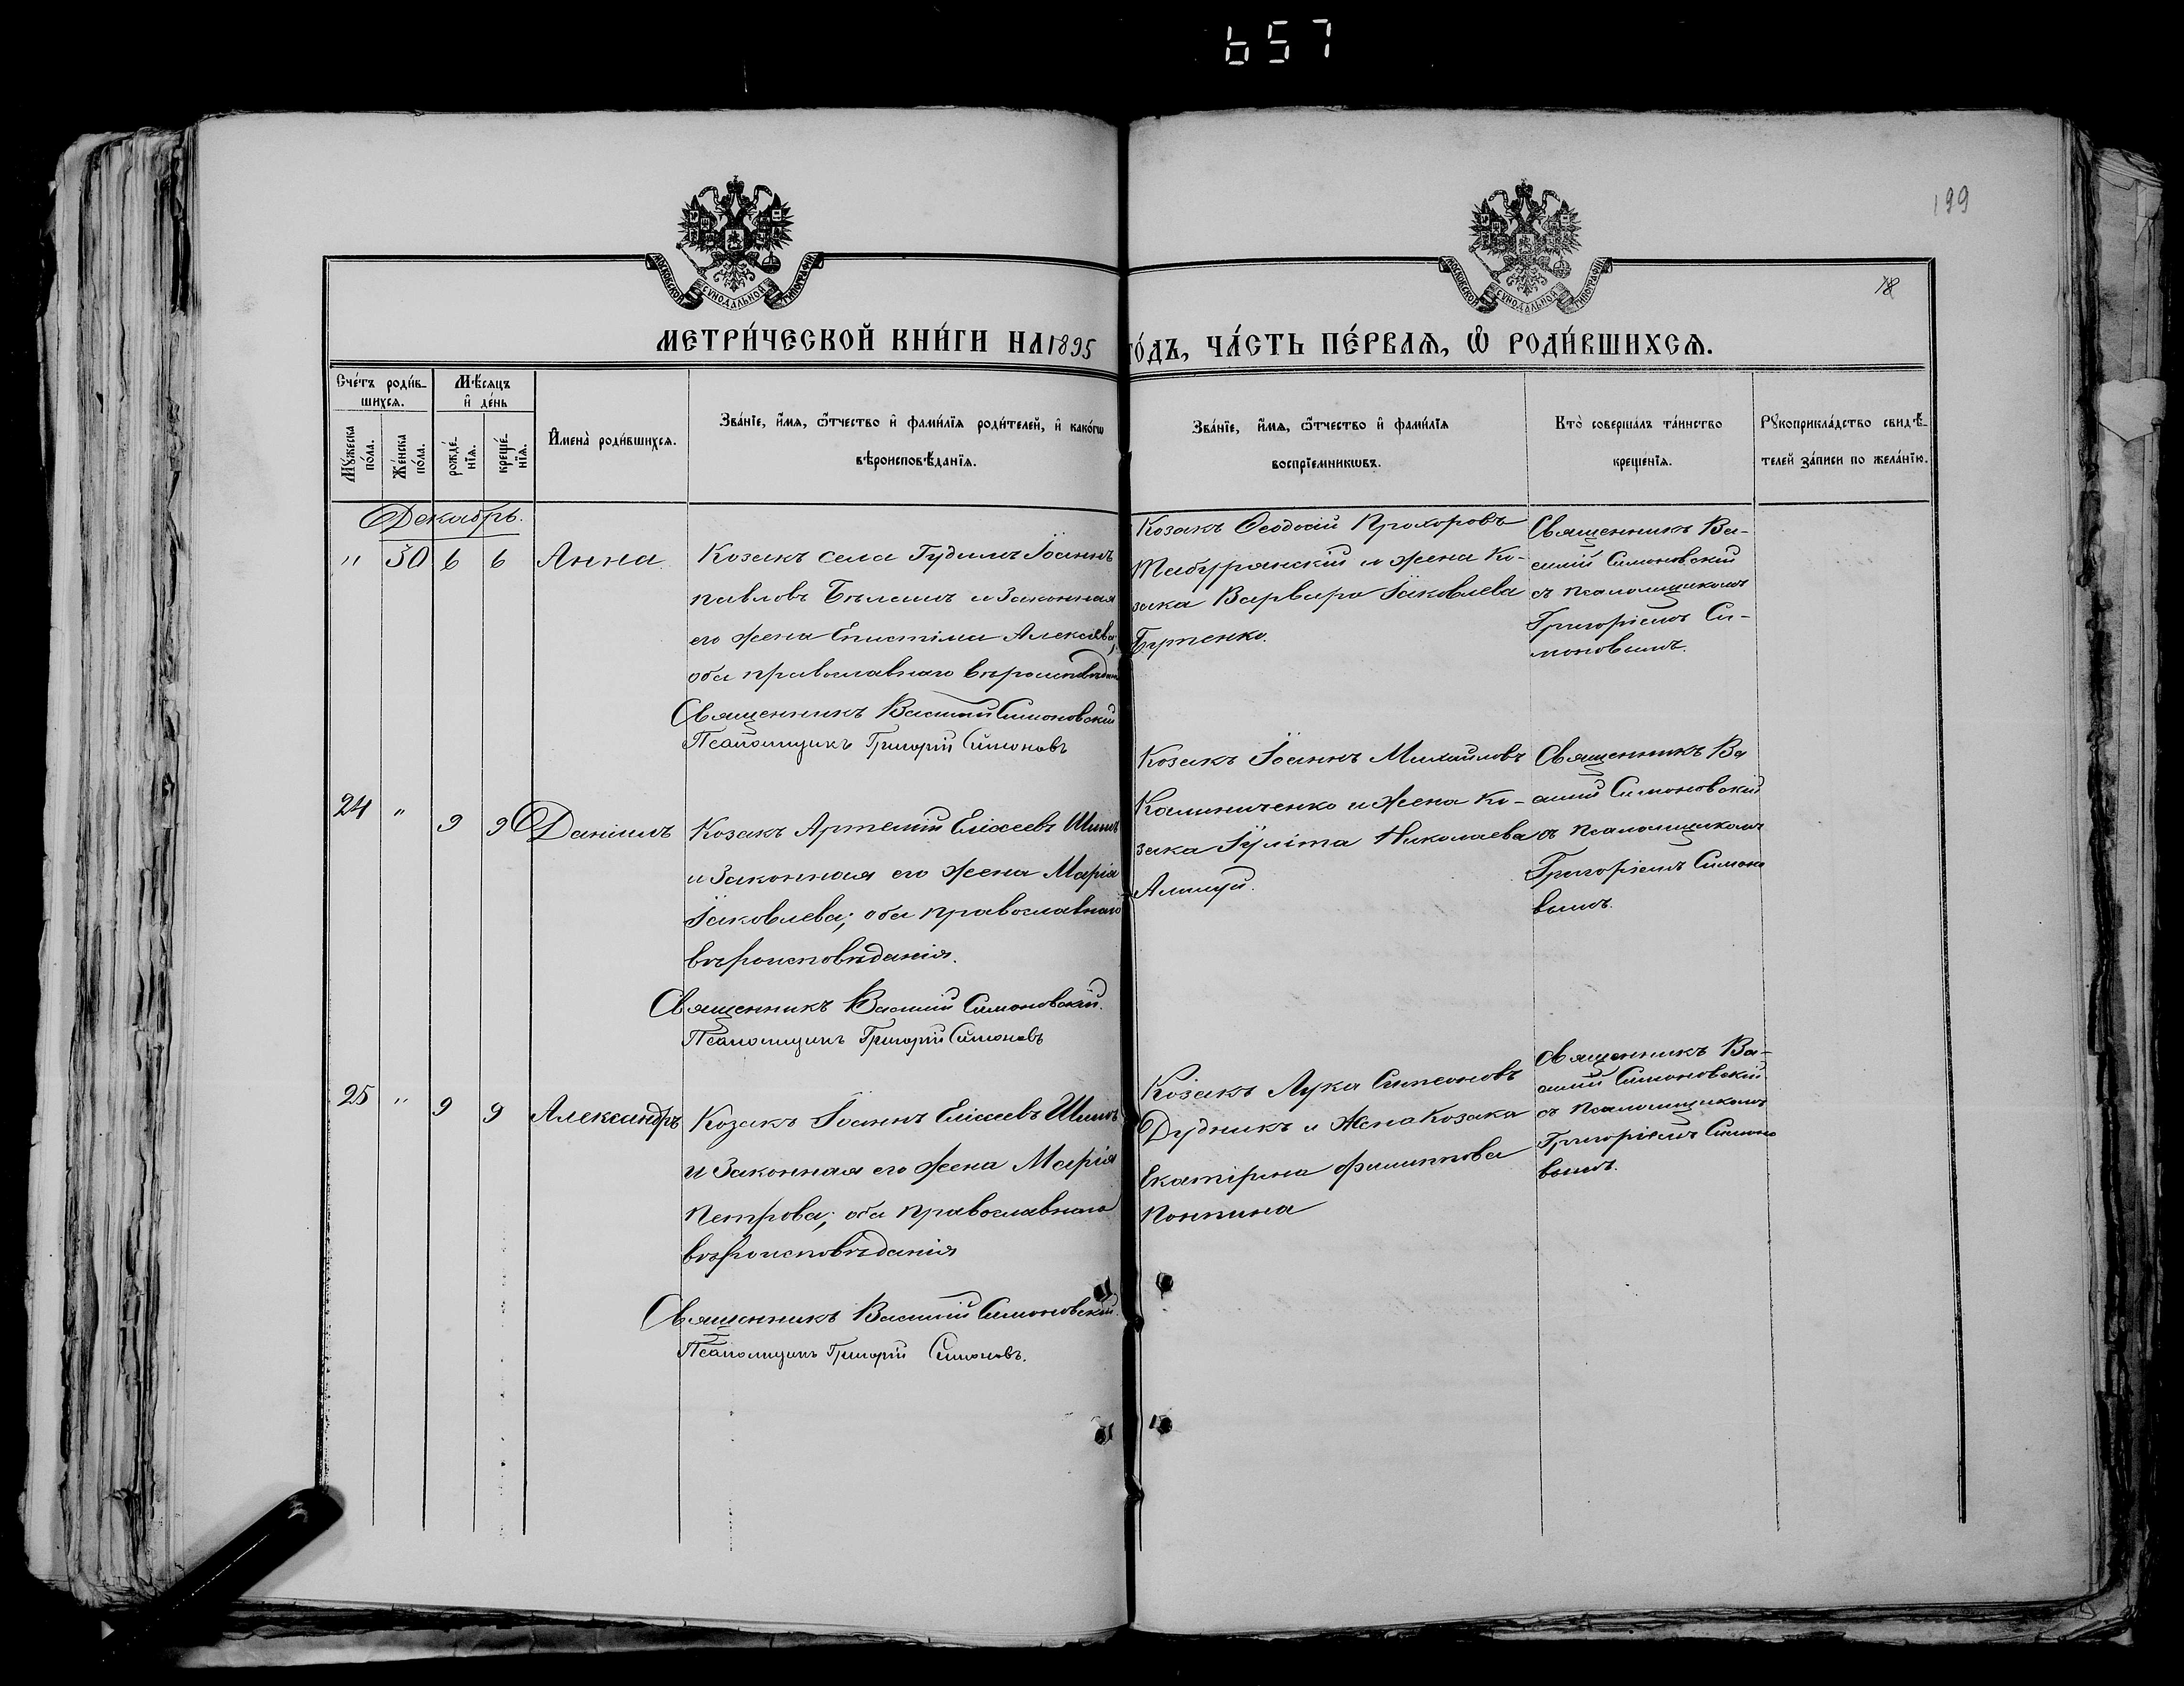 657
199
18
МОСКОВСКОЙ СѴНОДАЛЬНОЙ ТИПОГРАФІИ
МОСКОВСКОЙ СѴНОДАЛЬНОЙ ТИПОГРАФІИ
МЕТРИ́ЧЕСКОЙ КНИ́ГИ НА 1895 ГО́ДЪ, ЧА́СТЬ ПЕ́РВАѦ, Ѡ҆ РОДИ́ВШИХСѦ.
Сче́тъ роди́в-
шихсѧ.
Мѣ́сѧцъ
и҆ де́нь
Мꙋ́жеска
по́ла.
Же́нска
по́ла.
рожде́-
нїѧ.
креще́-
нїѧ.
И҆мена̀ роди́вшихсѧ.
Зва́нїе, и҆́мѧ, ѻ҆́тчество и҆ фами́лїѧ роди́телей, и҆ како́гѡ
вѣроисповѣ́данїѧ.
Зва́нїе, и҆́мѧ, ѻ҆́тчество и҆ фами́лїѧ
воспрїе́мникѡвъ.
Кто̀ соверша́лъ та́инство
креще́нїѧ.
Рꙋкоприкла́дство свидѣ́-
телей за́писи по жела́нїю.
Декабрь.
" 30 6 6 Анна
Козакъ села Гудимъ Іоаннъ
Павловъ Бѣлашъ и законная
его жена Епистіма Алексіева,
оба православнаго вѣроисповѣдан
Священникъ Василій Симоновскій
Псаломщикъ Григорій Симоновъ
Козакъ Ѳеодосій Прохоровъ
Табурянскій и жена Ко-
зака Варвара Іаковлева
Бутенко.
Священникъ Ва-
силій Симоновскій
съ псаломщикомъ
Григоріемъ Си-
моновымъ.
24 " 9 9 Даніилъ
Козакъ Артемій Еліссевъ
и законная его жена Марія
Іаковлева; оба православнаго
вѣроисповѣданія.
Священникъ Василій Симоновскій.
Псаломщикъ Григорій Симоновъ
Козакъ Іоаннъ Михайловъ
Калиниченко и жена Ко-
зака Іуліта Николаева
Священникъ Ва
силій Симоновскій
съ псаломщикомъ
Григоріемъ Симоно
вымъ.
25 " 9 9 Александръ
Козакъ Іоаннъ Еліссевъ
и законная его жена Марія
Петрова; оба православнаго
вѣроисповѣданія
Священникъ Василій Симоновскій.
Псаломщикъ Григорій Симоновъ.
Козакъ Лука Симеоновъ
Дудникъ и жена Козака
Екатерина Филиппова
Священникъ Ва-
силій Симоновскій
съ псаломщикомъ
Григоріемъ Симоно
вымъ.